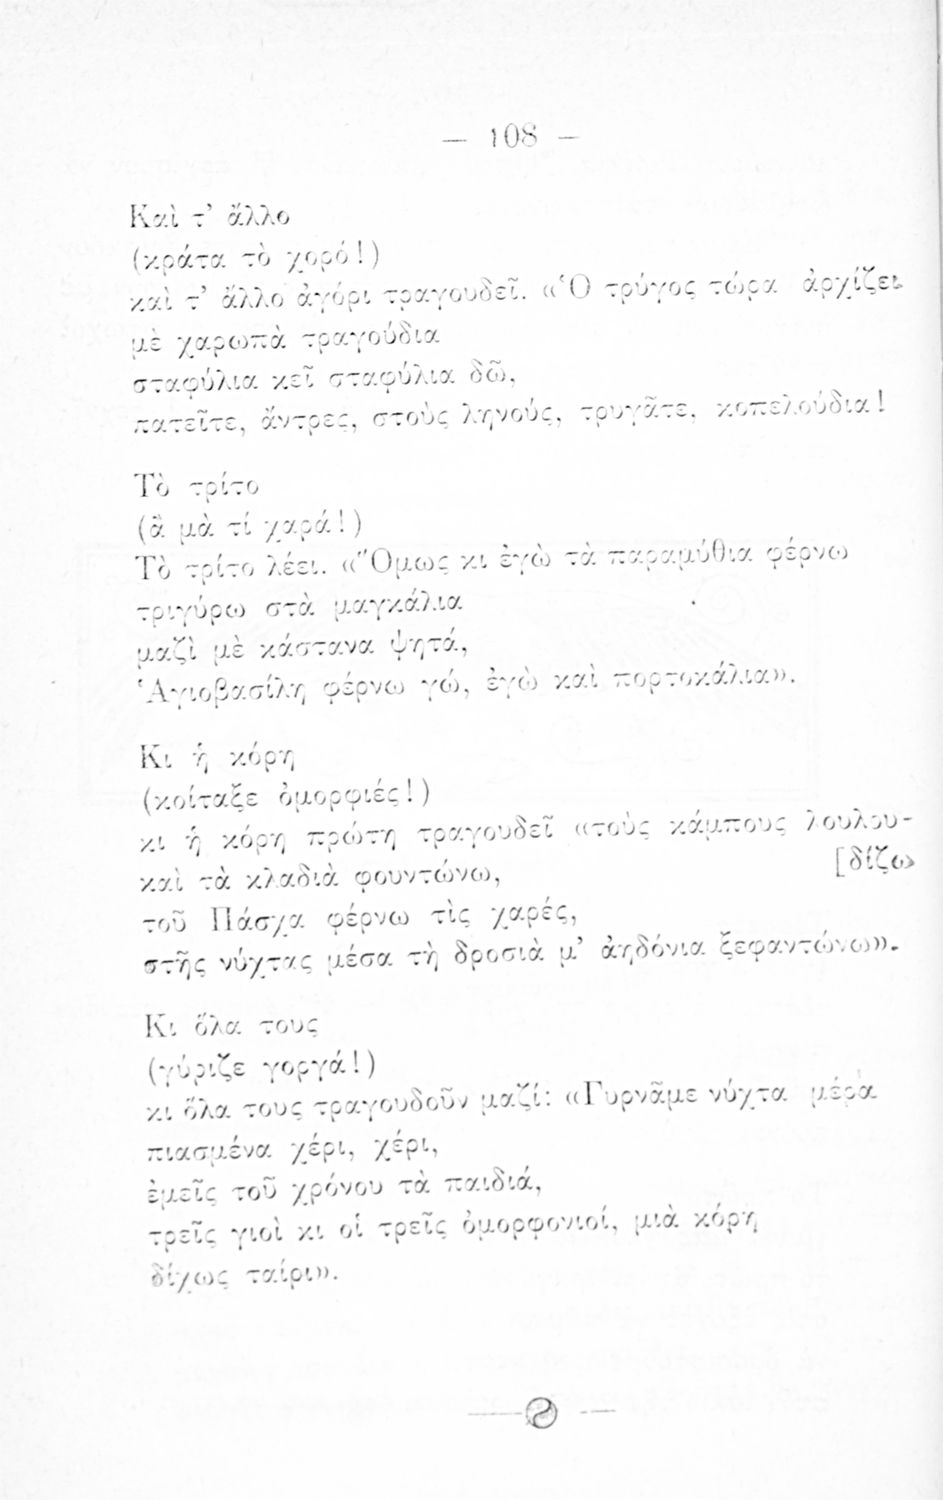 — 108 —
Καὶ τ’ ἄλλο
(κράτα τὸ χορό!)
καὶ τ’ ἄλλο ἀγόρι τραγουδεῖ. «Ὁ τρύγος τώρα ἀρχίζει
μὲ χαρωπὰ τραγούδια
σταφύλια κεῖ σταφύλια δῶ,
πατεῖτε, ἄντρες, στοὺς ληνούς, τρυγᾶτε, κοπελούδια!
Τὸ τρίτο
(ἂ μὰ τί χαρά!)
Τὸ τρίτο λέει. «Ὅμως κι ἐγὼ τὰ παραμύθια φέρνω
τριγύρω στὰ μαγκάλια
μαζὶ μὲ κάστανα ψητά,
Ἁγιοβασίλη φέρνω γώ, ἐγὼ καὶ πορτοκάλια».
Κι ἡ κόρη
(κοίταξε ὀμορφιές!)
κι ἡ κόρη πρώτη τραγουδεῖ «τοὺς κάμπους λουλου-
[δίζω
καὶ τὰ κλαδιὰ φουντώνω,
τοῦ Πάσχα φέρνω τὶς χαρές,
στῆς νύχτας μέσα τὴ δροσιὰ μ’ ἀηδόνια ξεφαντώνω».
Κι ὅλα τους
(γύριζε γοργά!)
κι ὅλα τους τραγουδοῦν μαζί: «Γυρνᾶμε νύχτα μέρα
πιασμένα χέρι, χέρι,
ἐμεῖς τοῦ χρόνου τὰ παιδιά,
τρεῖς γιοὶ κι οἱ τρεῖς ὀμορφονιοί, μιὰ κόρη
δίχως ταίρι».